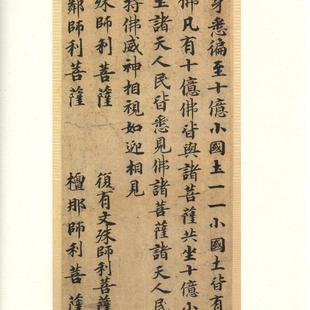 身悉徧至十億小國土一一小國土皆有
佛凡有十億佛皆與諸菩薩共坐十億小
土諸天人民皆悉見佛諸菩薩諸天人民
持佛威神相視如迎相見
殊師利菩薩 復有文殊師利菩薩
鄰師利菩薩 檀那師利菩薩